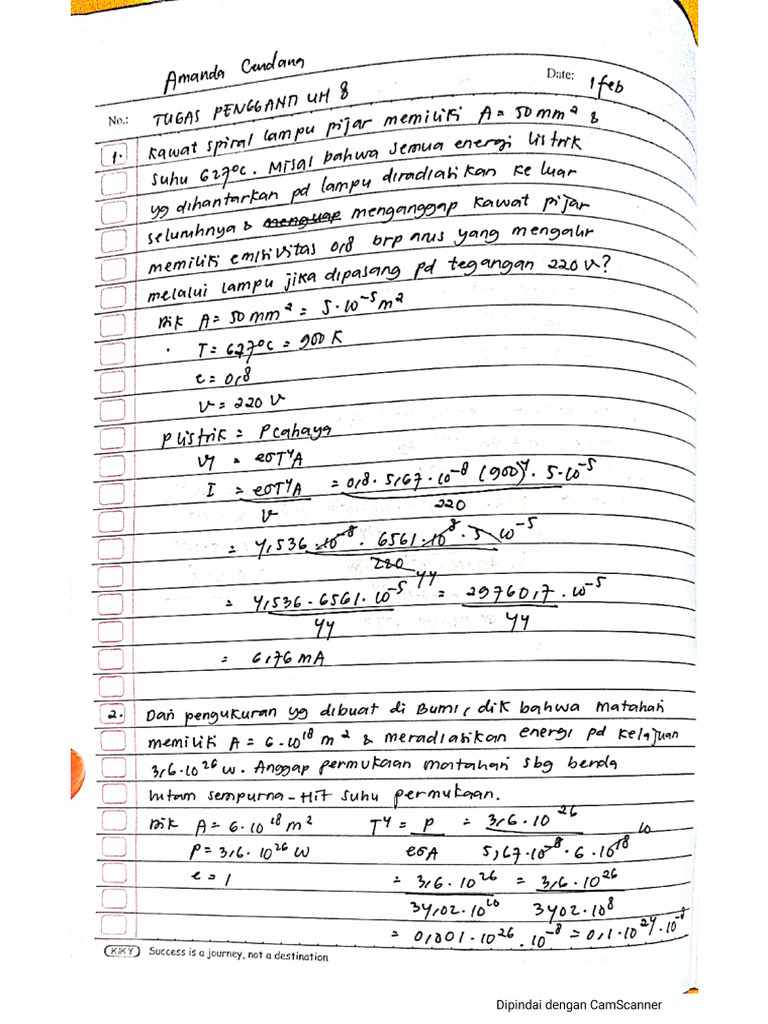 Amanda Cendana
Date: 1 feb
No.: TUGAS PENGGANTI UH 8
1. Kawat spiral lampu pijar memiliki A = 50 mm² &
suhu 627°C. Misal bahwa semua energi listrik
yg dihantarkan pd lampu diradiatikan ke luar
seluruhnya & menguap menganggap kawat pijar
memiliki emisivitas 0,8 brp arus yang mengalir
melalui lampu jika dipasang pd tegangan 220 V?
Dik A = 50 mm² = 5·10⁻⁵ m²
· T = 627°C = 900 K
e = 0,8
V = 220 V
P listrik = P cahaya
VI = eσT⁴A
I = eσT⁴A / V = 0,8 · 5,67·10⁻⁸ (900)⁴ · 5·10⁻⁵ / 220
= 4,536·10⁻⁸ · 6561·10⁸ · 5 10⁻⁵ / 220 44
= 4,536 · 6561 · 10⁻⁵ / 44 = 29760,7 · 10⁻⁵ / 44
= 6,76 mA
2. Dari pengukuran yg dibuat di Bumi, dik bahwa matahari
memiliki A = 6·10¹⁸ m² & meradiatikan energi pd kelajuan
3,6·10²⁶ W. Anggap permukaan matahari sbg benda
hitam sempurna - Hit suhu permukaan.
Dik A = 6·10¹⁸ m² T⁴ = P / eσA = 3,6·10²⁶ / 5,67·10⁻⁸ · 6·10¹⁸ 10
P = 3,6·10²⁶ W
e = 1 = 3,6·10²⁶ / 34,02·10¹⁰ = 3,6·10²⁶ / 3402·10⁸
= 0,001·10²⁶ · 10⁻⁸ = 0,1·10²⁴·10⁻⁸
KIKY Success is a journey, not a destination
Dipindai dengan CamScanner